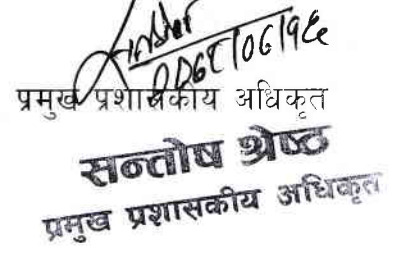 प्रमुख प्रशासकीय अधिकृत
सन्तोष श्रेष्ठ
प्रमुख प्रशासकीय अधिकृत